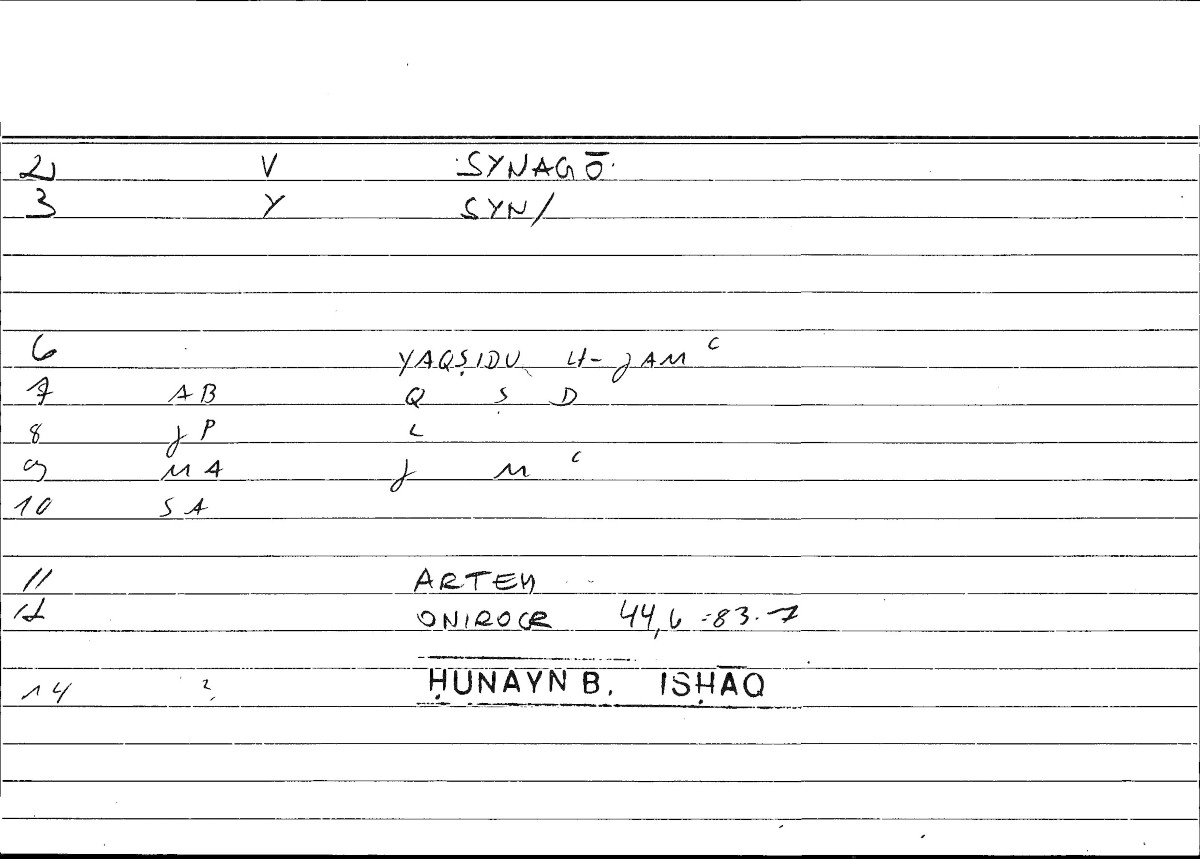 2 V SYNAGŌ
3 Y SYN/
6 YAQṢIDU LI-JAM ᶜ
7 AB Q Ṣ D
8 JP L
9 MA J M ᶜ
10 SA
11 ARTEM
12 ONIROCR 44,6 = 83.7
14 2 ḤUNAYN B. ISḤĀQ